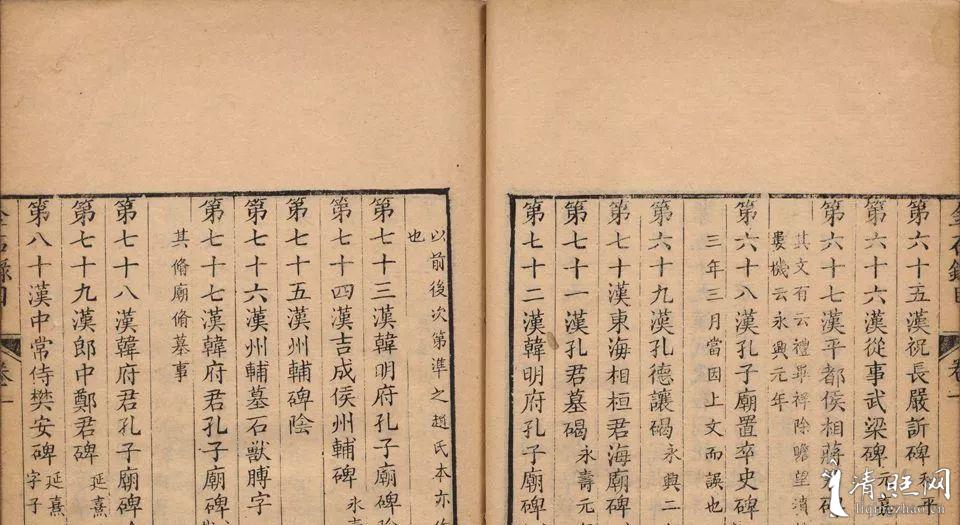 金石錄目
卷一
第六十五漢祝長嚴訢碑 和平
第六十六漢從事武梁碑 元
第六十七漢平都侯相蔣君碑
其文有云禮畢祥除瞻望墳
婁機云永興元年
第六十八漢孔子廟置卒史碑
三年三月當因上文而誤也
第六十九漢孔德讓碣 永興二
第七十漢東海相桓君海廟碑
第七十一漢孔君墓碣 永壽元
第七十二漢韓明府孔子廟碑
以前後次第準之趙氏本亦作
也
第七十三漢韓明府孔子廟碑陰
第七十四漢吉成侯州輔碑 永
第七十五漢州輔碑陰
第七十六漢州輔墓石獸膊字
第七十七漢韓府君孔子廟碑
其脩廟脩墓事
第七十八漢韓府君孔子廟碑
第七十九漢郎中鄭君碑 延熹
第八十漢中常侍樊安碑 延熹 字子
金石錄目
卷一
清照网
liqingzhao.cn